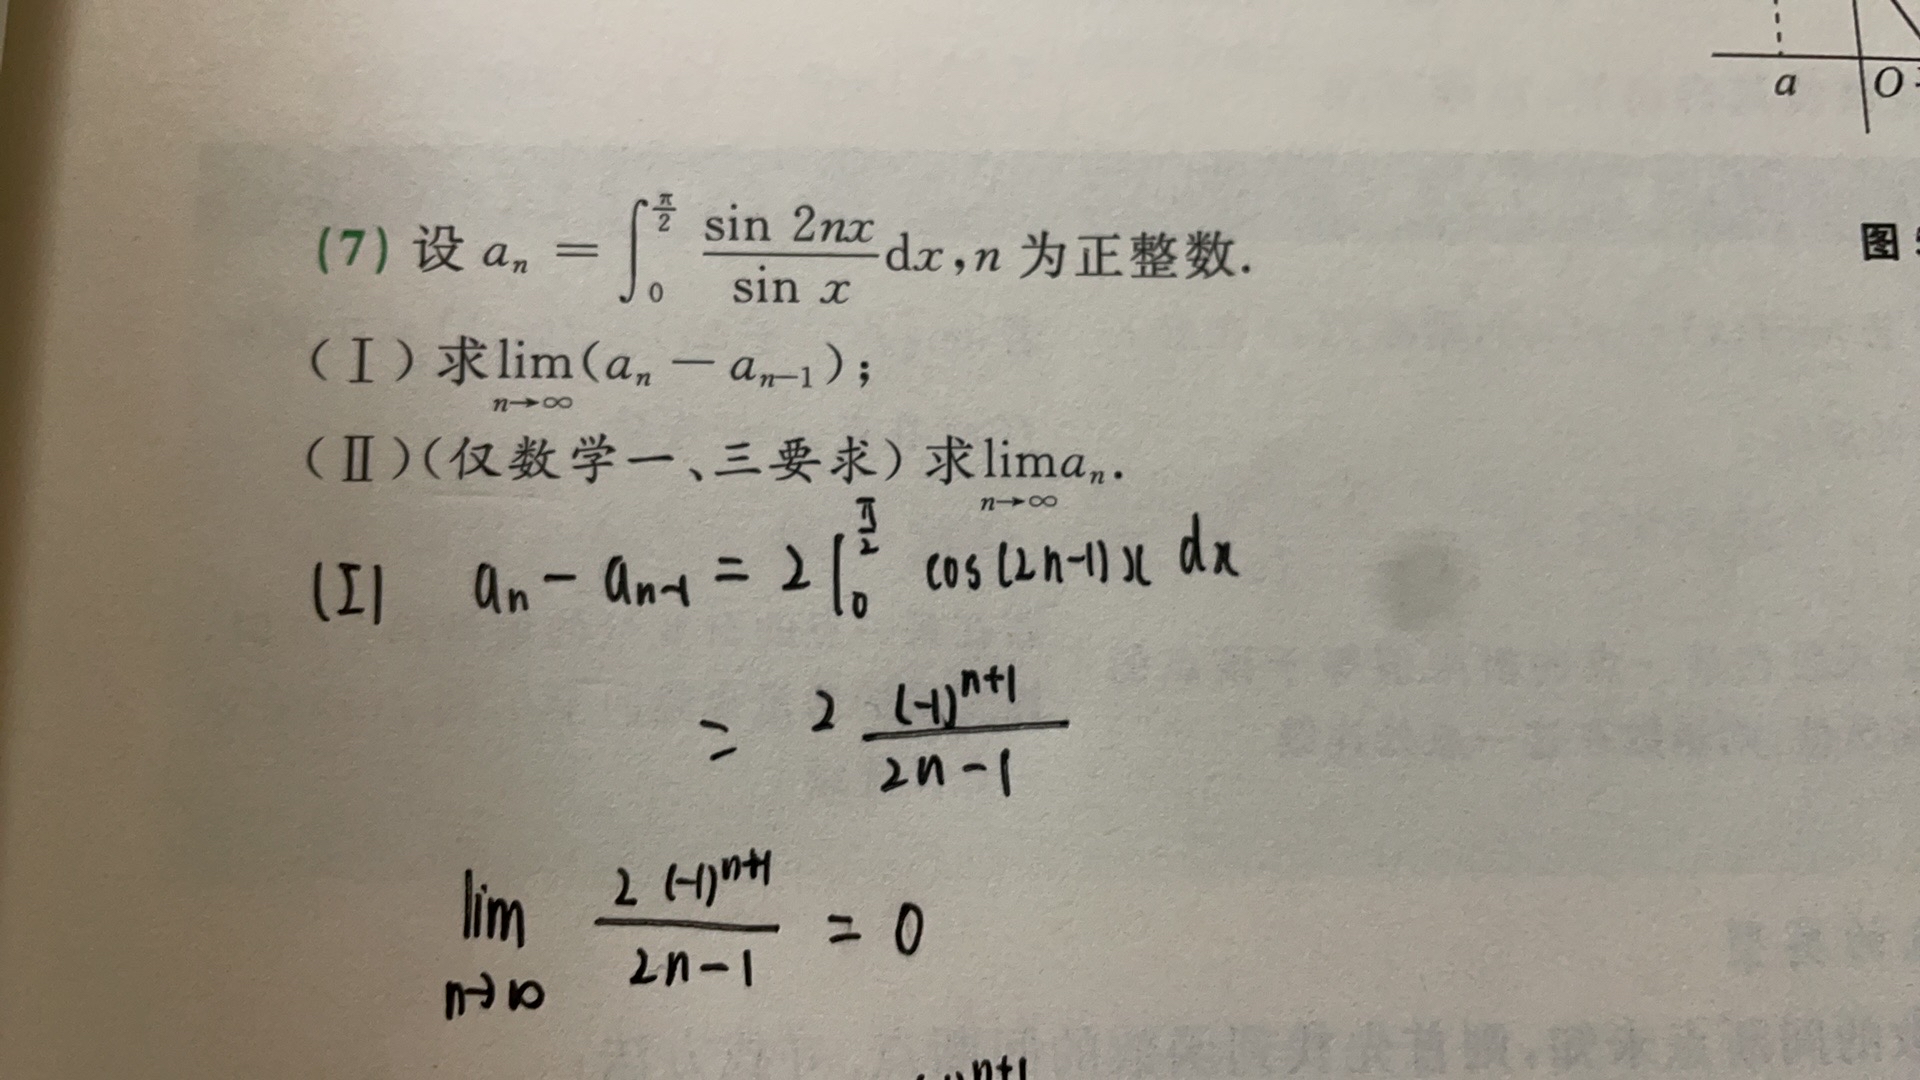 a O
图
(7) 设 aₙ = ∫₀^{π/2} (sin 2nx)/(sin x) dx, n 为正整数.
(Ⅰ) 求 lim_{n→∞}(aₙ − aₙ₋₁);
(Ⅱ)(仅数学一、三要求) 求 lim_{n→∞} aₙ.
(I) aₙ − aₙ₋₁ = 2∫₀^{π/2} cos(2n-1)x dx
= 2 (-1)^{n+1}/(2n-1)
lim_{n→∞} 2(-1)^{n+1}/(2n-1) = 0
n+1